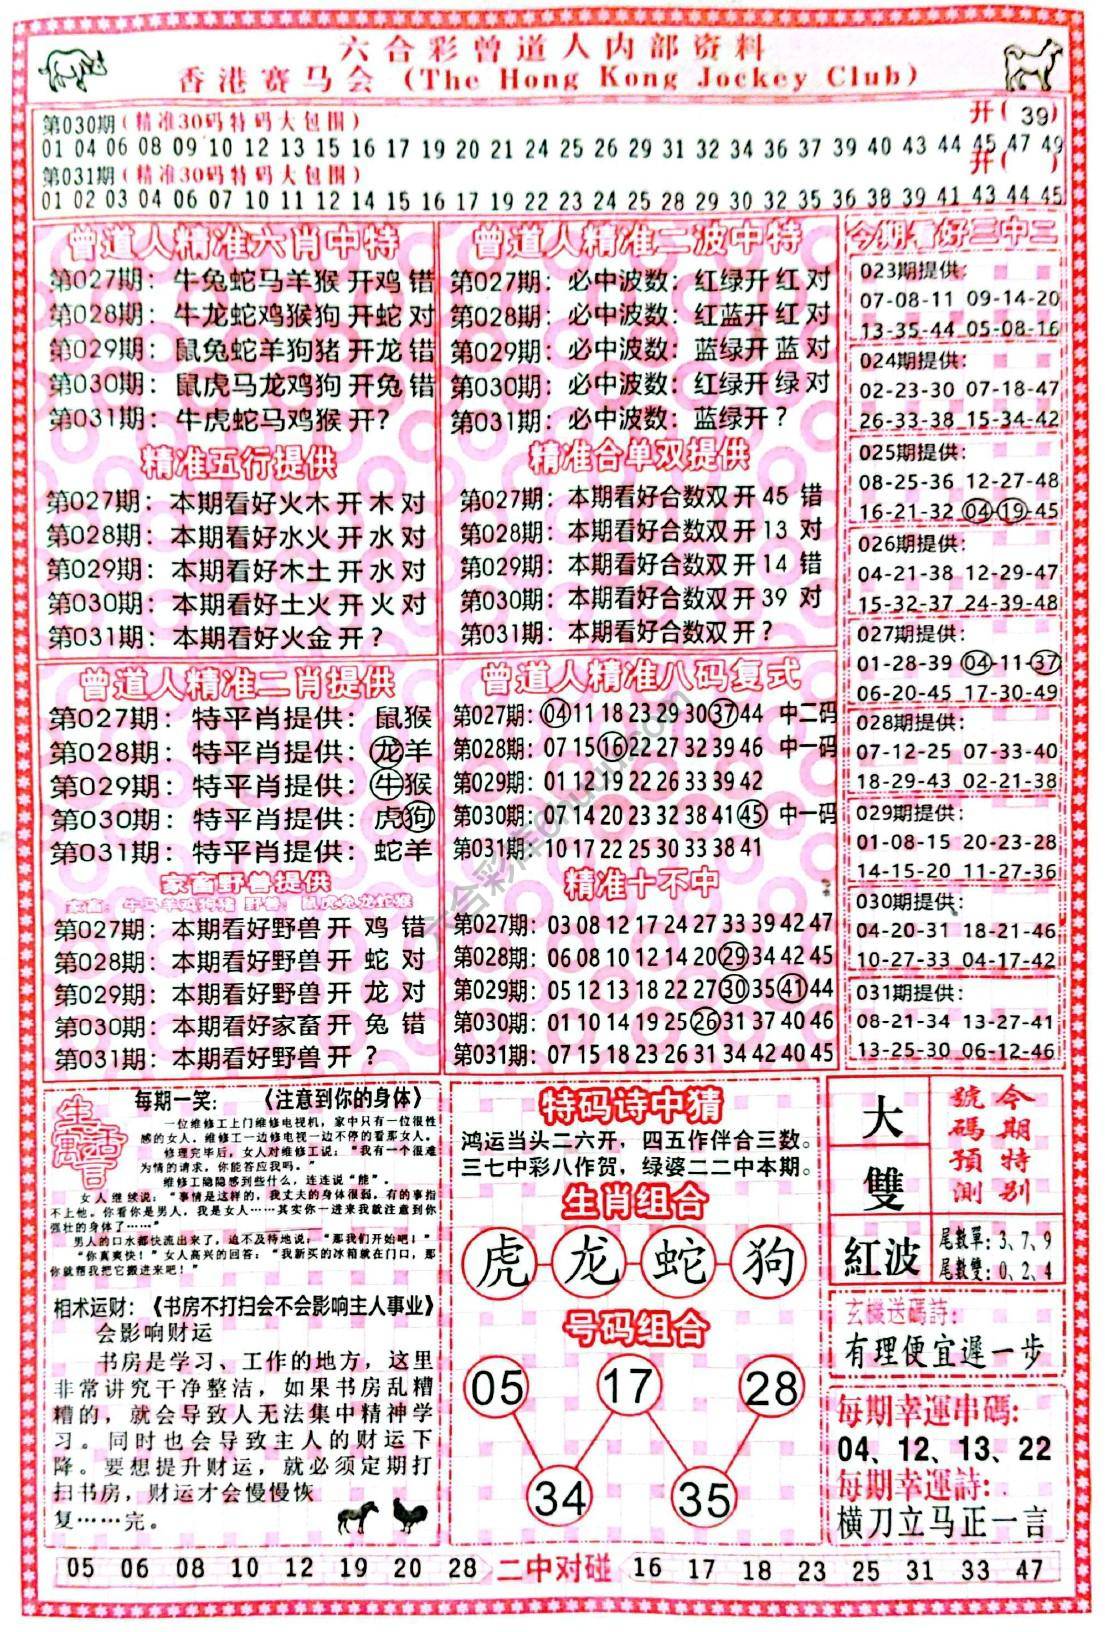 六合彩曾道人内部资料
香港赛马会（The Hong Kong Jockey Club）
第030期（精准30码特码大包围） 开( 39)
01 04 06 08 09 10 12 13 15 16 17 19 20 21 24 25 26 29 31 32 34 36 37 39 40 43 44 45 47 49
第031期（精准30码特码大包围） 开( )
01 02 03 04 06 07 10 11 12 14 15 16 17 19 23 24 25 28 29 30 32 35 36 38 39 41 43 44 45
曾道人精准六肖中特
第027期：牛兔蛇马羊猴 开鸡 错
第028期：牛龙蛇鸡猴狗 开蛇 对
第029期：鼠兔蛇羊狗猪 开龙 错
第030期：鼠虎马龙鸡狗 开兔 错
第031期：牛虎蛇马鸡猴 开?
精准五行提供
第027期：本期看好火木 开 木 对
第028期：本期看好水火 开 水 对
第029期：本期看好木土 开 水 对
第030期：本期看好土火 开 火 对
第031期：本期看好火金 开 ?
曾道人精准二波中特
第027期：必中波数：红绿开 红 对
第028期：必中波数：红蓝开 红 对
第029期：必中波数：蓝绿开 蓝 对
第030期：必中波数：红绿开 绿 对
第031期：必中波数：蓝绿开 ?
精准合单双提供
第027期：本期看好合数双 开 45 错
第028期：本期看好合数双 开 13 对
第029期：本期看好合数双 开 14 错
第030期：本期看好合数双 开 39 对
第031期：本期看好合数双 开 ?
今期看好三中二
023期提供：
07-08-11 09-14-20
13-35-44 05-08-16
024期提供：
02-23-30 07-18-47
26-33-38 15-34-42
025期提供：
08-25-36 12-27-48
16-21-32 04-19-45
026期提供：
04-21-38 12-29-47
15-32-37 24-39-48
027期提供：
01-28-39 04-11-37
06-20-45 17-30-49
028期提供：
07-12-25 07-33-40
18-29-43 02-21-38
029期提供：
01-08-15 20-23-28
14-15-20 11-27-36
030期提供：
04-20-31 18-21-46
10-27-33 04-17-42
031期提供：
08-21-34 13-27-41
13-25-30 06-12-46
曾道人精准二肖提供
第027期：特平肖提供：鼠猴
第028期：特平肖提供：龙羊
第029期：特平肖提供：牛猴
第030期：特平肖提供：虎狗
第031期：特平肖提供：蛇羊
家畜野兽提供
家畜：牛马羊鸡狗猪 野兽：鼠虎兔龙蛇猴
第027期：本期看好野兽 开 鸡 错
第028期：本期看好野兽 开 蛇 对
第029期：本期看好野兽 开 龙 对
第030期：本期看好家畜 开 兔 错
第031期：本期看好野兽 开 ?
曾道人精准八码复式
第027期：04 11 18 23 29 30 37 44 中二码
第028期：07 15 16 22 27 32 39 46 中一码
第029期：01 12 19 22 26 33 39 42
第030期：07 14 20 23 32 38 41 45 中一码
第031期：10 17 22 25 30 33 38 41
精准十不中
第027期：03 08 12 17 24 27 33 39 42 47
第028期：06 08 10 12 14 20 29 34 42 45
第029期：05 12 13 18 22 27 30 35 41 44
第030期：01 10 14 19 25 26 31 37 40 46
第031期：07 15 18 23 26 31 34 42 40 45
生活寓言
每期一笑： 《注意到你的身体》
一位维修工上门维修电视机，家中只有一位很性
感的女人。维修工一边修电视一边不停的看那女人。
修理完毕后，女人对维修工说：“我有一个很难
为情的请求，你能答应我吗。”
维修工隐隐感到些什么，连连说“能”。
女人继续说：“事情是这样的，我丈夫的身体很弱。有的事指
不上他。你看你是男人，我是女人……其实你一进来我就注意到你
强壮的身体了……”
男人的口水都快流出来了，迫不及待地说：“那我们开始吧！”
“你真爽快！”女人高兴的回答：“我新买的冰箱就在门口，那
你就帮我把它搬进来吧！”
相术运财：《书房不打扫会不会影响主人事业》
会影响财运
书房是学习、工作的地方，这里
非常讲究干净整洁，如果书房乱糟
糟的，就会导致人无法集中精神学
习。同时也会导致主人的财运下
降。要想提升财运，就必须定期打
扫书房，财运才会慢慢恢
复……完。
特码诗中猜
鸿运当头二六开，四五作伴合三数。
三七中彩八作贺，绿婆二二中本期。
生肖组合
虎 龙 蛇 狗
号码组合
05 17 28
34 35
大
雙
紅波
今期特别
號碼預測
尾數單：3、7、9
尾數雙：0、2、4
玄機送碼詩：
有理便宜遲一步
每期幸運串碼：
04、12、13、22
每期幸運詩：
横刀立马正一言
05 06 08 10 12 19 20 28 二中对碰 16 17 18 23 25 31 33 47